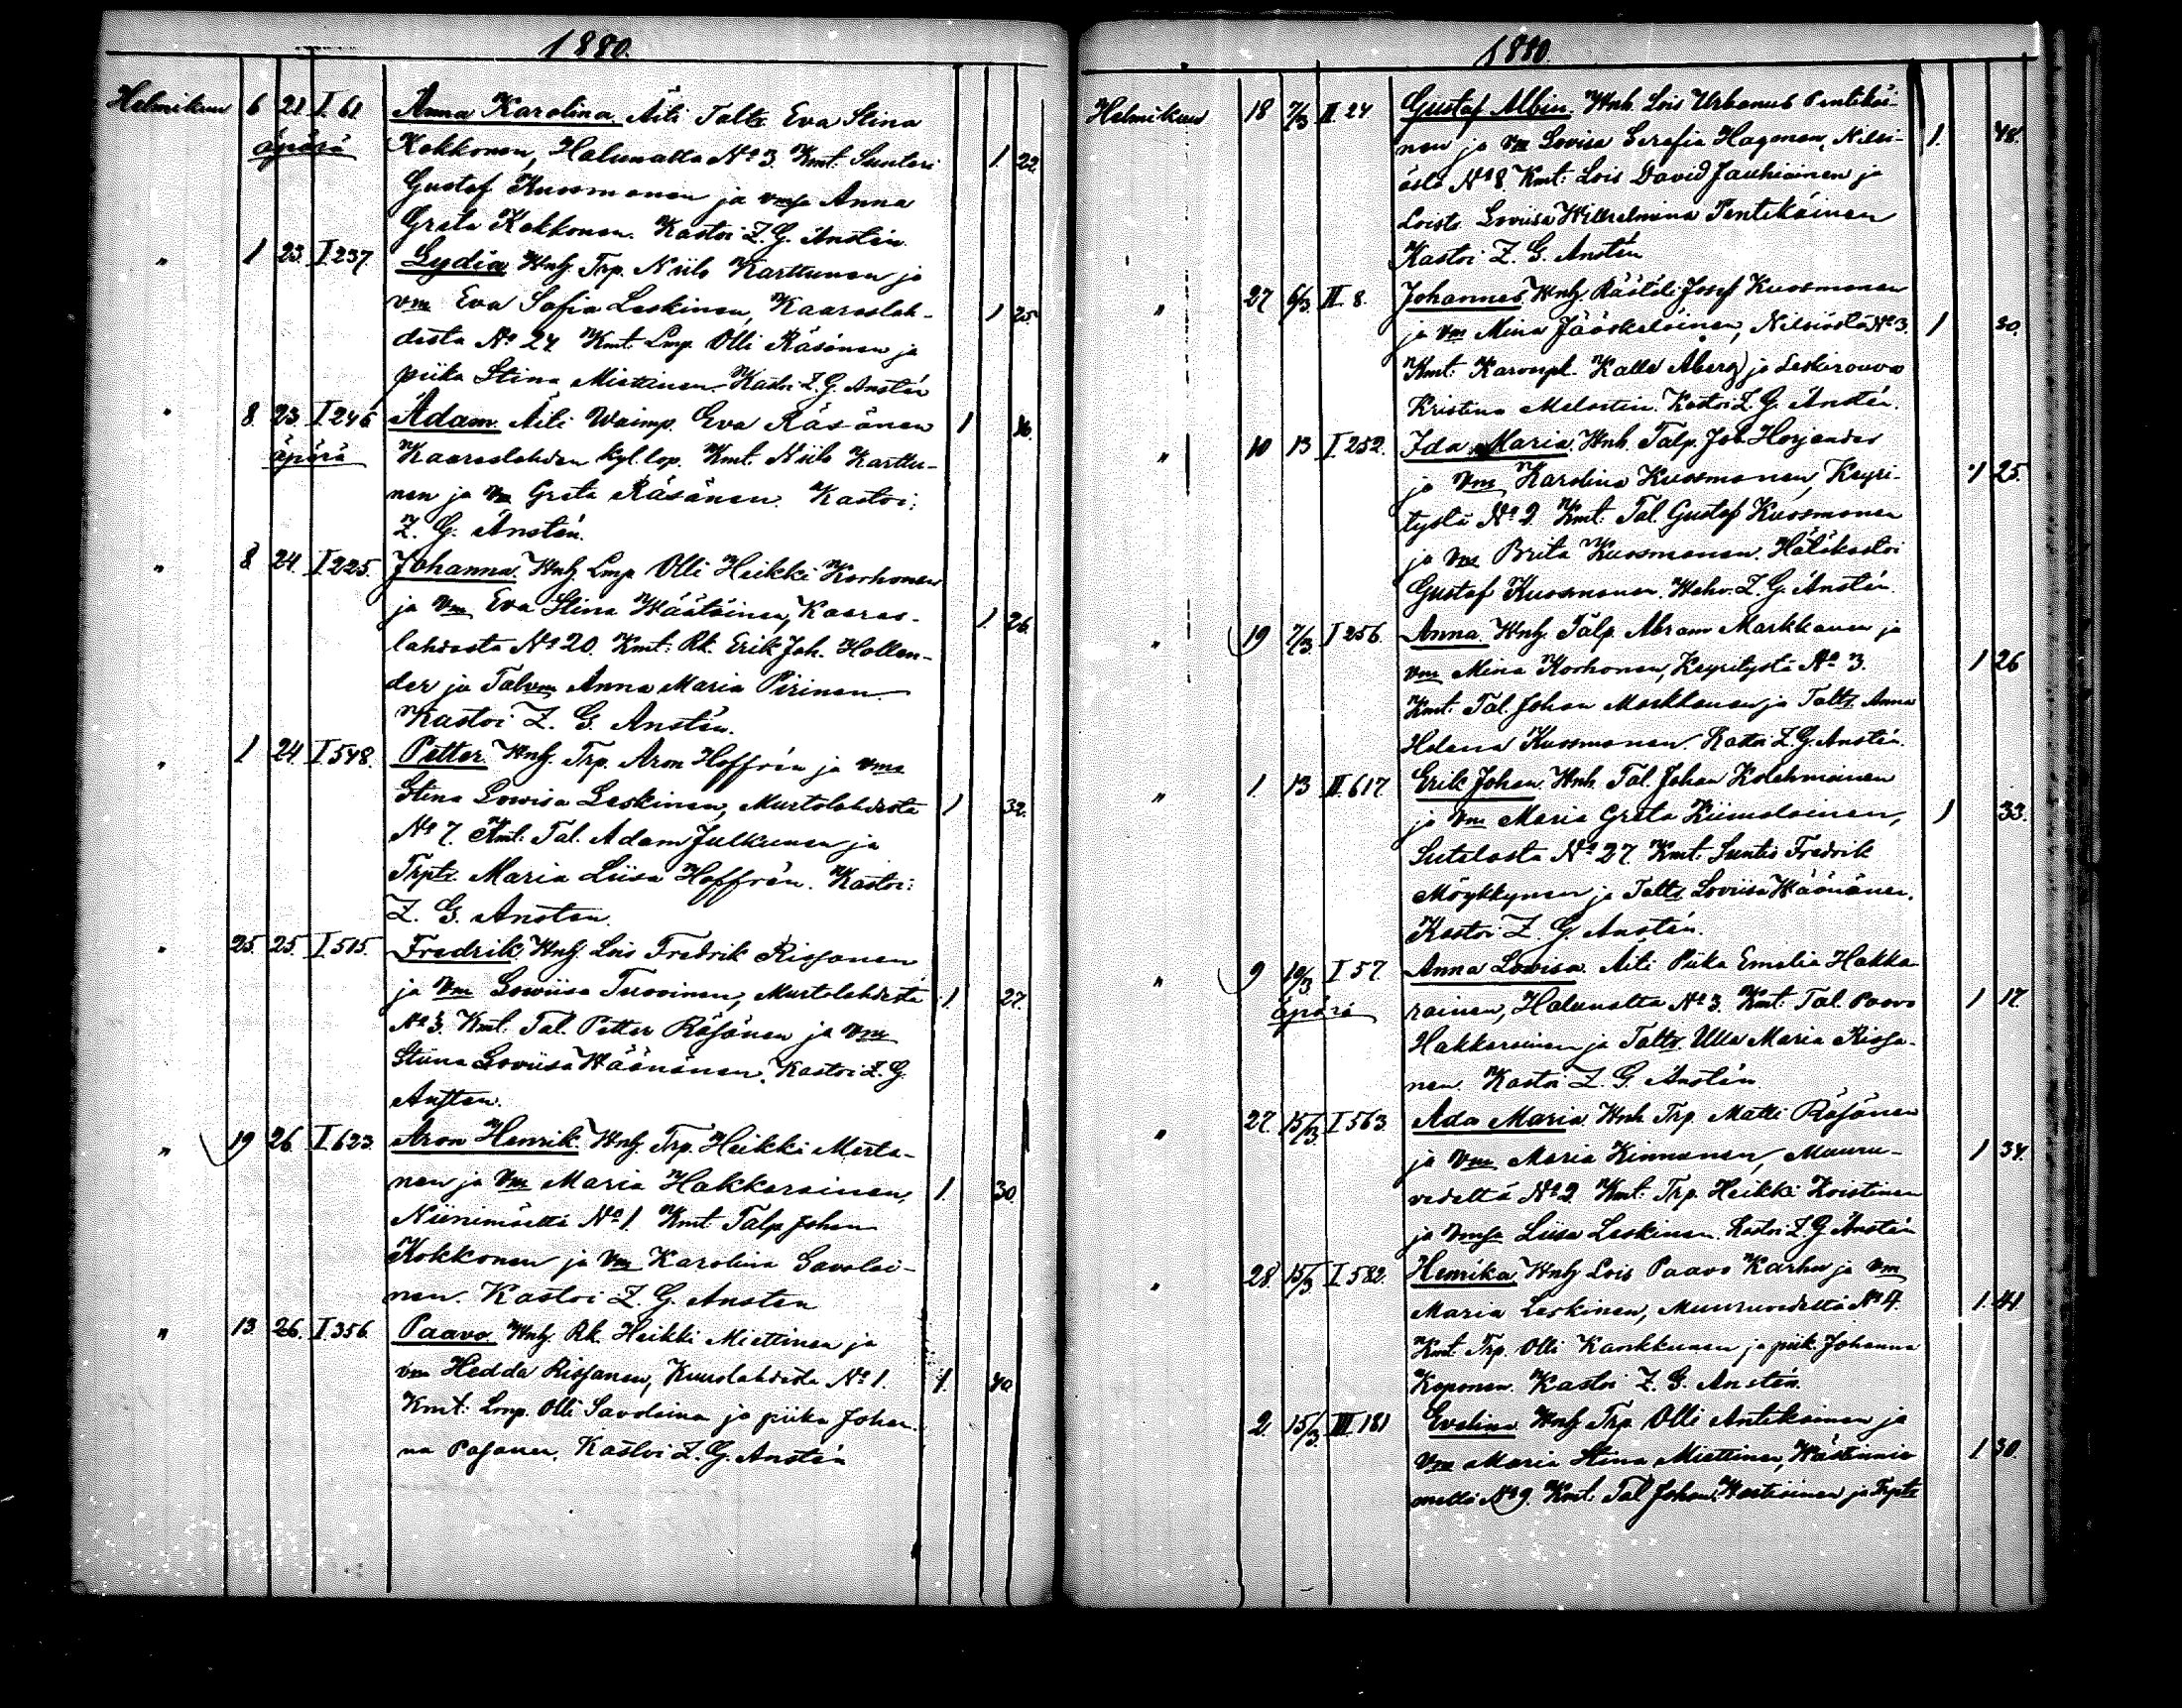 1880.
Helmikuu 6 21 I.61 Anna Karolina. Äiti Taltr. Eva Stina
äpärä Kokkonen, Halunalta No 3. Kmt. Suntari 1. 22.
Gustaf Kuosmanen ja vmsa Anna
Greta Kokkonen. Kastoi Z. G. Anstén.
" 1 23. I.237. Lydia. Vnh. Trp. Niilo Karttunen ja
vm Eva Sofia Leskinen, Kaaraslah- 1 25.
desta No 24 Kmt. Lmp. Olli Räsänen ja
piika Stina Miettinen. Kastoi Z. G. Anstén
" 8. 23. I.246 Adam. Äiti Vaimp. Eva Räsänen 1 36.
äpärä Kaaraslahden kyl. lop. Kmt. Niilo Karttu-
nen ja vm Greta Räsänen. Kastoi:
Z. G. Anstén.
" 8 24. I.225. Johanna. Vnh. Lmp. Olli Heikki Korhonen
ja vm Eva Stina Väätäinen, Kaaras- 1. 26.
lahdesta No 20. Kmt. Rt. Erik Joh. Hollen-
der ja Talvm Anna Maria Pirinen.
Kastoi Z. G. Anstén.
" 1 24. I.548. Petter. Vnh. Trp. Aron Hoffrén ja vmsa
Stina Lowisa Leskinen, Murtolahdesta 1 32.
No 7. Kmt. Tal. Adam Julkunen ja
Trptr. Maria Liisa Hoffrén. Kastoi:
Z. G. Anstén.
" 25. 25. I.515. Fredrik. Vnh. Lois Fredrik Rissanen
ja vm Lowiisa Tuovinen, Murtolahdesta 1. 27.
No 3. Kmt. Tal. Petter Räsänen ja vm
Stiina Loviisa Väänänen. Kastoi Z. G.
Ansten.
" 19 26. I.623. Aron Henrik. Vnh. Trp. Heikki Marta-
nen ja vm Maria Hakkarainen, 1. 30.
Niinimäeltä No 1. Kmt. Talp Johan
Kokkonen ja vm Karolina Savolai-
nen. Kastoi Z. G. Ansten
" 13. 26. I.356. Paavo. Vnh. Rt. Heikki Miettinen ja
vm Hedda Rissanen, Kuuslahdesta No 1. 1. 40.
Kmt: Lmp. Olli Savolaina ja piika Johan-
na Pasanen. Kastoi Z. G. Anstén
1880.
Helmikuu 18 7/3 II 24 Gustaf Albin. Vnh. Lois Urbanus Pentikäi-
nen ja vm Lovisa Serafia Hagman, Nilsi- 1. 48.
ästä No 8. Kmt. Lois David Jauhiainen ja
Loistr. Loviisa Wilhelmina Pentikäinen
Kastoi Z. G. Anstén
" 27 6/3. II. 8. Johannes. Vnh. Räätäli Josef Kuosmanen
ja vm Mina Jääskeläinen, Nilsiästä No 3. 1 30.
Kmt: Karvarpl. Kalle Åberg ja Leskirouva
Kristina Melartin. Kastoi Z. G. Anstén.
" 10 13 I.252. Ida Maria. Vnh. Talp. Joh. Horjander
ja vm Karolina Kuosmanen, Keyri- 1 25.
tystä No 2. Kmt: Tal. Gustaf Kuosmanen
ja vm Brita Kuosmanen. Hätäkastoi
Gustaf Kuosmanen. Vahv. Z. G. Anstén.
" 19 7/3 I 256. Anna. Vnh. Talp. Abram Markkanen ja
vm Mina Korhonen, Keyritystä No 3. 1 26
Kmt. Tal. Johan Markkanen ja Taltr. Anna
Helena Kuosmanen. Kastoi Z. G. Anstén.
" 1. 13 II.617. Erik Johan. Vnh. Tal. Johan Kolehmainen
ja vm Maria Greta Kiimalainen, 1 33.
Sutelasta No 27. Kmt. Suntio Fredrik
Möykkynen ja Taltr. Loviisa Väänänen.
Kastoi Z. G. Anstén.
" 9 10/3 I 57. Anna Lovisa. Äiti Piika Emalia Hakka-
äpärä rainen, Halunalta No 3. Kmt. Tal. Paavo 1 17.
Hakkarainen ja Taltr. Ulla Maria Rissa-
nen. Kastoi Z. G. Anstén
" 27. 15/3 I 563 Ada Maria. Vnh. Trp. Matti Räsänen
ja vm Maria Kinnunen, Muuru- 1 34.
vedeltä No 2. Kmt: Trp. Heikki Koistinen
ja vmsa Liisa Leskinen. Kastoi Z. G. Anstén
" 28. 15/3 I.582. Henrika. Vnh. Lois Paavo Karhu ja vm
Maria Leskinen, Muuruvedeltä No 4. 1. 41.
Kmt. Trp. Olli Kankkunen ja piik. Johanna
Koponen. Kastoi Z. G. Anstén.
2. 15/3. III 181 Evelina. Vnh. Trp. Olli Antikainen ja
vm Maria Stina Miettinen, Västinnie- 1 30.
meltä No 9. Kmt. Tal Johan Vartiainen ja Trptr